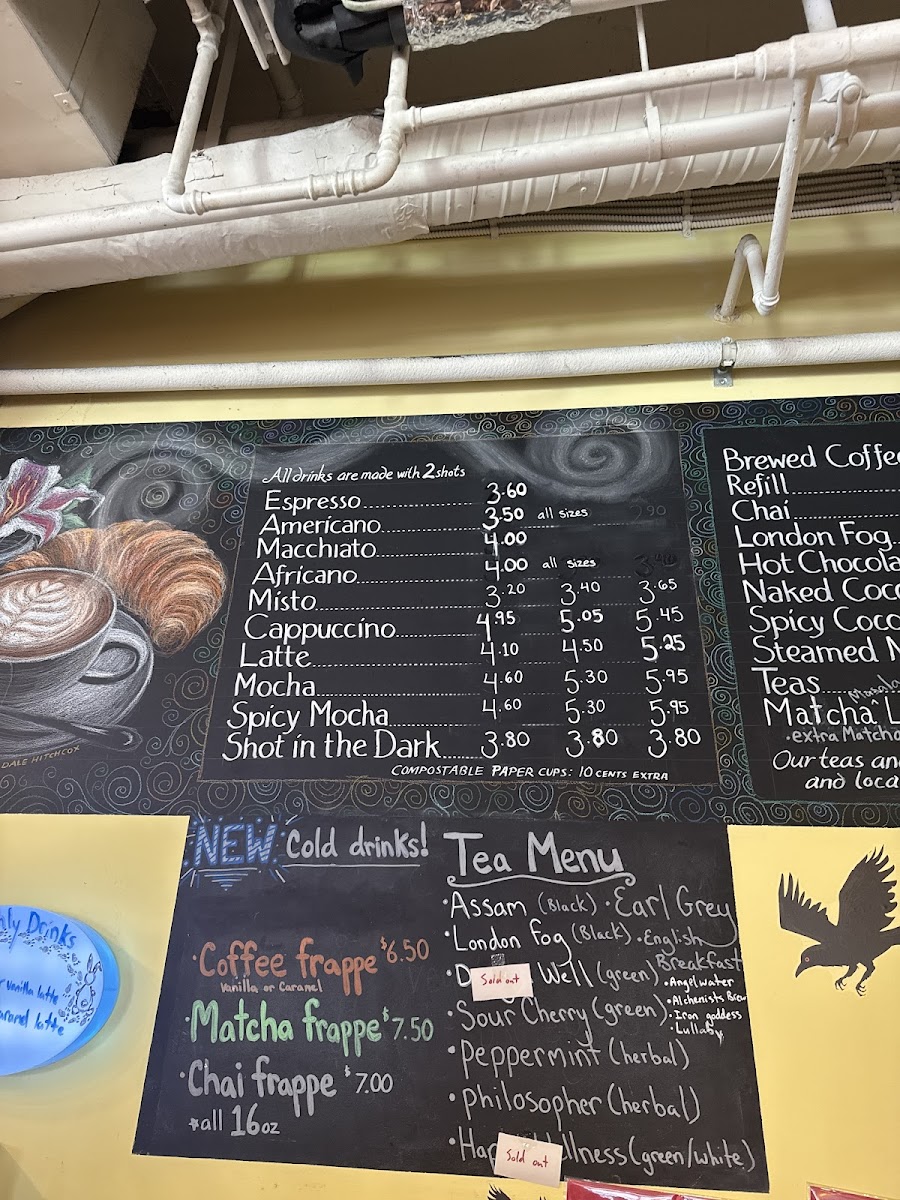 All drinks are made with 2 shots
Espresso 3.60
Americano 3.50 all sizes
Macchiato 4.00
Africano 4.00 all sizes
Misto 3.20 3.40 3.65
Cappuccino 4.95 5.05 5.45
Latte 4.10 4.50 5.25
Mocha 4.60 5.30 5.95
Spicy Mocha 4.60 5.30 5.95
Shot in the Dark 3.80 3.80 3.80
COMPOSTABLE PAPER CUPS: 10 CENTS EXTRA
DALE HITCHCOX
Brewed Coffee
Refill
Chai
London Fog
Hot Chocola
Naked Coco
Spicy Coco
Steamed
Teas
Matcha
•extra Matcha
Our teas an
and loca
NEW Cold drinks!
•Coffee frappe $6.50
Vanilla or Caramel
•Matcha frappe $7.50
•Chai frappe $7.00
*all 16oz
Tea Menu
•Assam (Black) •Earl Grey
•London Fog (Black) •English
Breakfast
Well (green)
Sold out
•Angelwater
•Alchemists Brew
•Iron goddess
•Lullaby
•Sour Cherry (green)
•Peppermint (herbal)
•Philosopher (herbal)
(green/white)
Sold out
Drinks
vanilla latte
latte